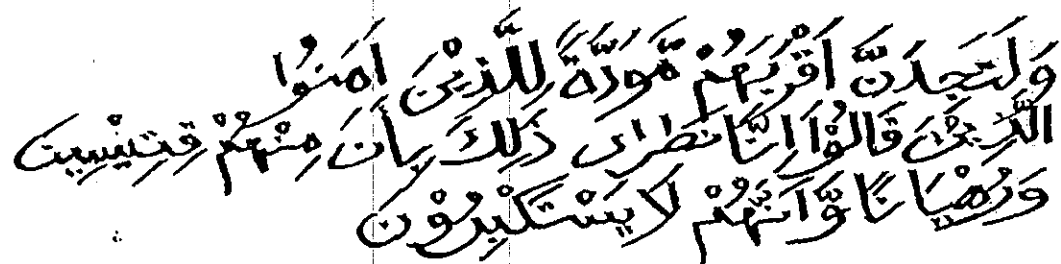 وَلَتَجِدَنَّ اَقْرَبَهُمْ مَّوَدَّةً لِّلَّذِيْنَ اٰمَنُوا
الَّذِيْنَ قَالُوْٓا اِنَّا نَصٰرٰى ذٰلِكَ بِاَنَّ مِنْهُمْ قِسِّيْسِيْنَ
وَرُهْبَانًا وَّاَنَّهُمْ لَا يَسْتَكْبِرُوْنَ